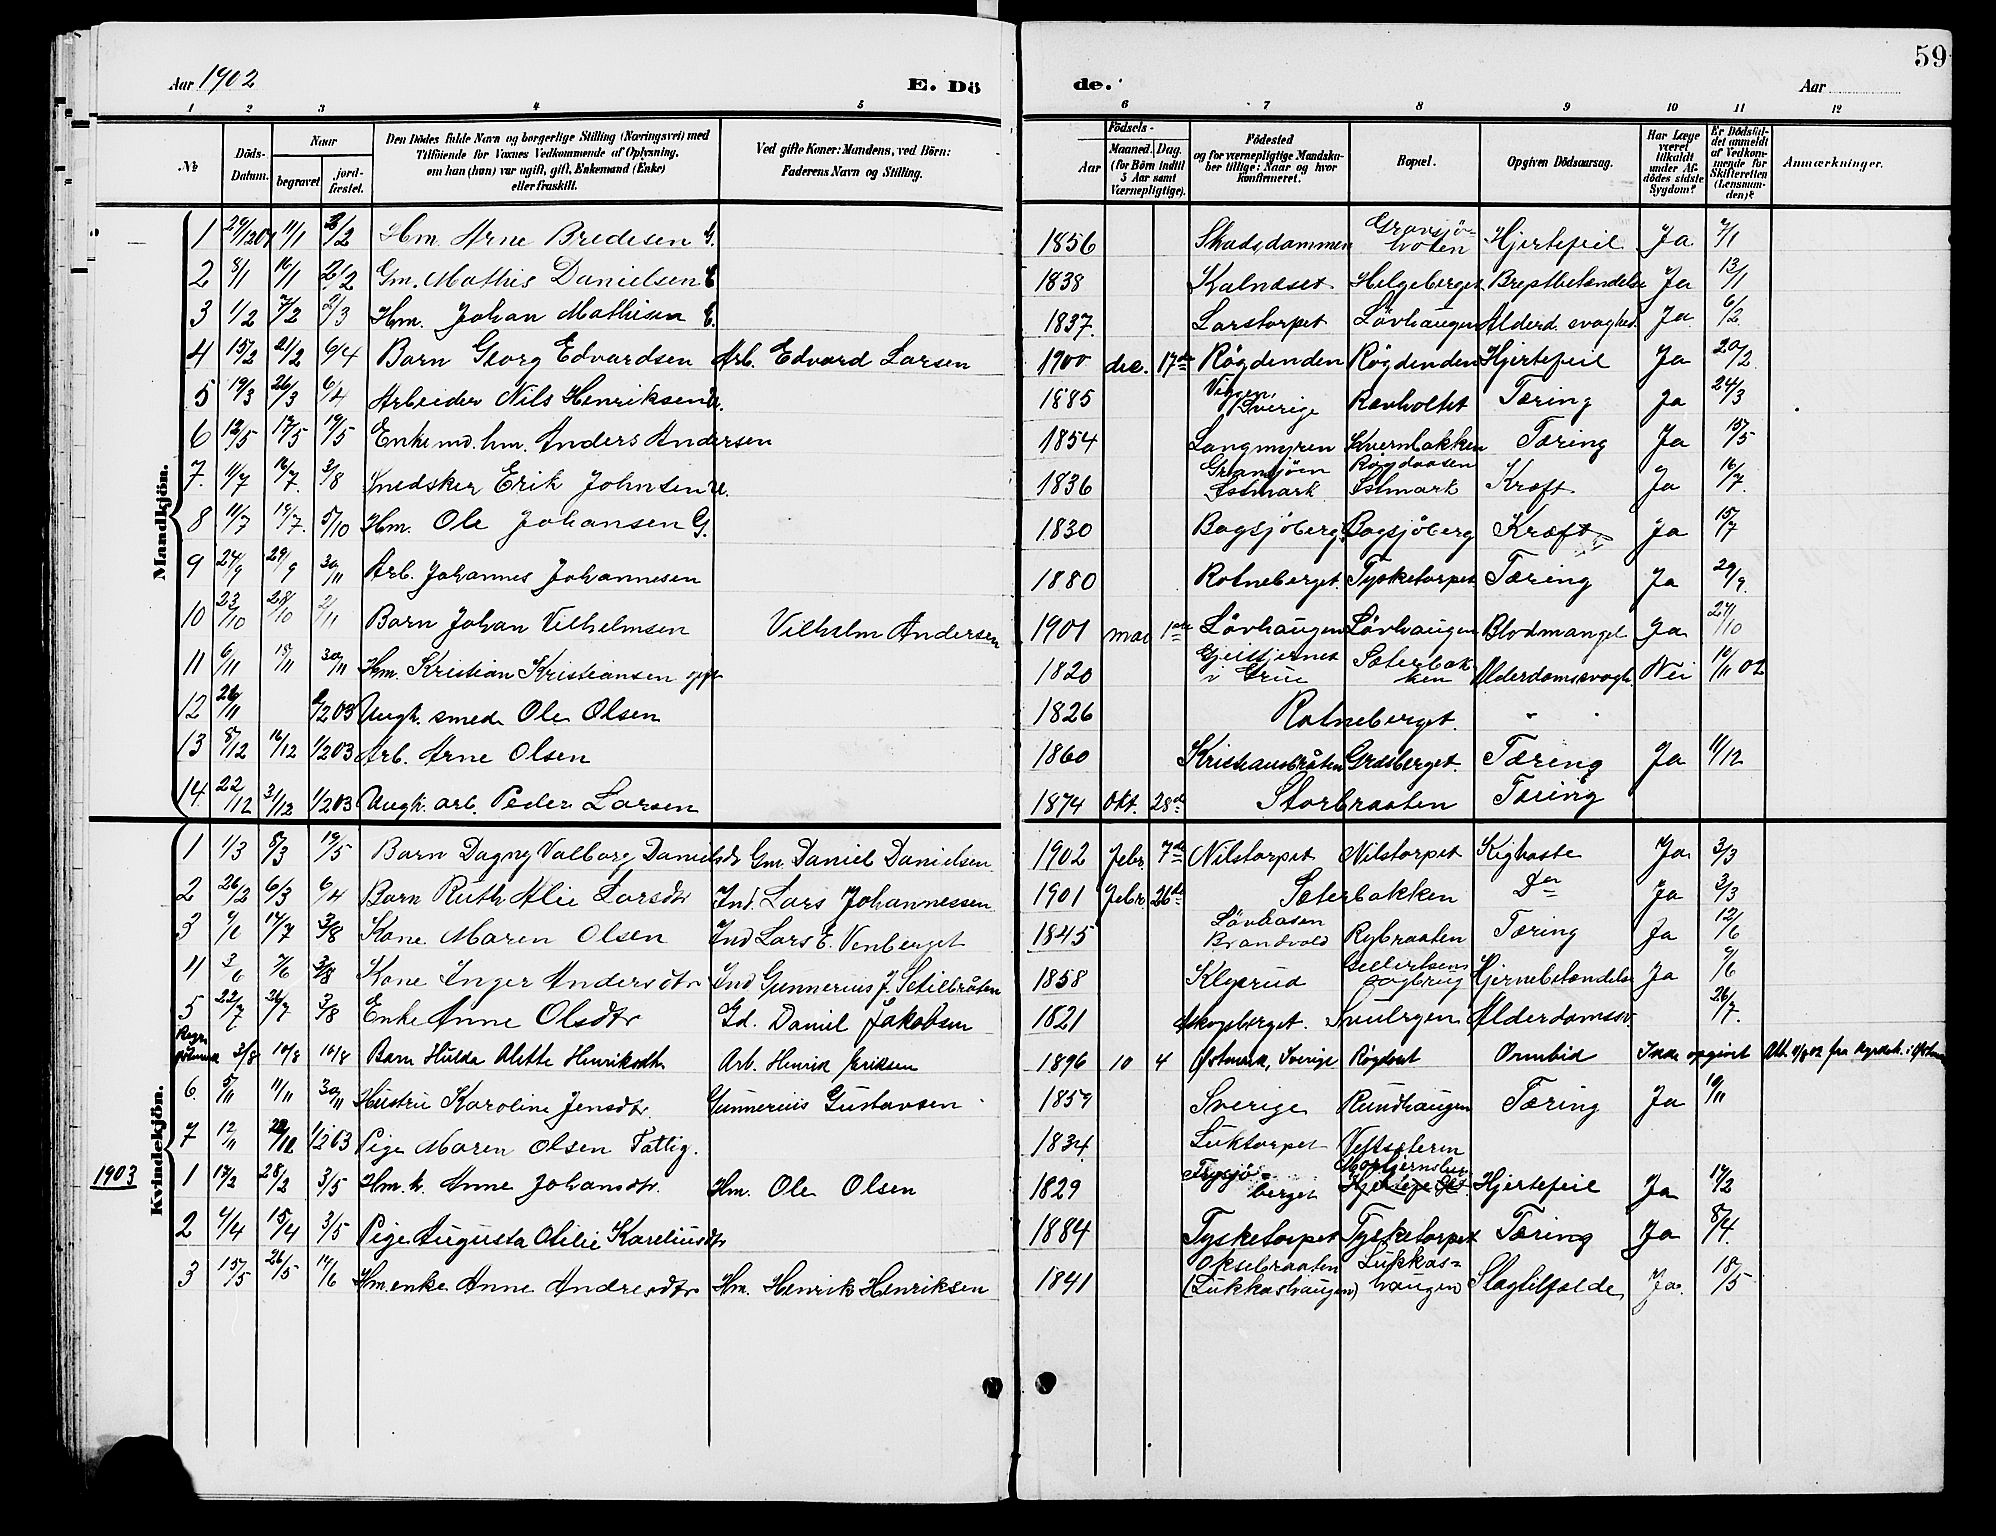 59
Aar 1902 E. Dö de. Aar
1 2 3 4 5 6 7 8 9 10 11 12
№ Döds-Datum. Naar begravet jord-fæstet. Den Dödes fulde Navn og borgerlige Stilling (Næringsvei) med Tilföiende for Voxnes Vedkommende af Oplysning, om han (hun) var ugift, gift, Enkemand (Enke) eller fraskilt. Ved gifte Koner: Mandens, ved Börn: Faderens Navn og Stilling. Födsels- Aar Maaned. Dag. (for Börn indtil 5 Aar samt Værnepligtige). Födested og for værnepligtige Mandska-ber tillige: Naar og hvor konfirmeret. Bopæl. Opgiven Dödsaarsag. Har Læge været tilkaldt under Af-dödes sidste Sygdom? Er Dödsfal-det anmeldt af Vedkom-mende for Skifteretten (Lensmanden)? Anmærkninger.
Mandkjön.
1 11/1 3/2 Hm. Arne Bredesen G. 1856 Skadsdammen Hjertefeil Ja 7/1
2 8/1 16/1 2/2 Gm. Mathis Danielsen E 1838 Kalneset Helgeberget Brystbetændelse Ja 13/1
3 1/2 7/2 2/3 Hm. Johan Mathisen E. 1837. Larstorpet Lövhaugen Alderd. svaghed. Ja 6/2
4 15/2 21/2 6/4 Barn Georg Edvardsen Arb. Edvard Larsen 1900 dec. 17de Røgdenden Røgdenden Hjertefeil Ja 20/2
5 19/3 26/3 6/4 Arbeider Nils Henriksen U. 1885 Viggen, Sverige Ravholtet Tæring Ja 24/3
6 12/5 17/5 19/5 Enkemd. hm. Anders Andersen 1854 Langmyren Kvernbakken Tæring Ja 15/5
7. 11/7 16/7. 3/8 Snedsker Erik Johnsen U. 1836 Gransjöen Östmark Rögdaasen Östmark Kræft Ja 16/7.
8 11/7 19/7. 5/10 Hm. Ole Johansen G. 1830 Bagsjöberg Bagsjöberg Kræft Ja 15/7
9 24/9 29/9 30/11 Arb. Johannes Johannesen 1880 Rotneberget. Tysketorpet Tæring Ja 29/9.
10 23/10 28/10 2/11 Barn Johan Vilhelmsen Vilhelm Andersen 1901 mai 1ste Lövhaugen Lövhaugen Blodmangel Ja 27/10
11 6/11 15/11 30/11 Hm. Kristian Kristiansen 1820 Gjeltjernet i Grue Sæterbakken Alderdomssvagh. Nei 10/11 02
12 26/11 2/2 03 Ungk. smed Ole Olsen 1826 Rotneberget. "
13 8/12 16/12 1/2 03 Arb. Arne Olsen 1860 Kristiansbråten Græsberget. Tæring Ja 11/12
14. 22/12 31/12 1/2 03 Ungk. arb. Peder Larsen 1874 Okt. 28de Storbraaten Tæring
Kvindekjön.
1 1/3 8/3 19/5 Barn Dagny Valborg Danielsdtr Gm. Daniel Danielsen 1902 febr. 7de Nilstorpet Nilstorpet Kighoste Ja 3/3
2 26/2 6/3 6/4 Barn Ruth Alie Larsdtr Ind. Lars Johannessen 1901 febr. 26de Sæterbakken Do Ja 3/3
3 14/7 3/8 Kone Maren Olsen Ind Lars E. Venberget 1845 Lövhasen Brandvold Rybraaten Tæring Ja 12/6
4 3/6 7/6 3/8 Kone Inger Andersdtr Ind Gunnerius J. Setilbråten 1858 Kleprud Hjernebetændelse Ja 9/6
5 22/7 26/7 3/8 Enke Anne Olsdtr Gd. Daniel Jakobsen 1821 Askogsberget. Alderdomssv. 26/7.
3/8 10/8 10/8 Barn Hulda Alette Henriksdtr Arb. Henrik Eriksen 1896 10 4 Østmark, Sverige Røgdost Ormbid Ikke opgivet
6. 5/11 11/11 30/11 Hustru Karoline Jensdtr. Gunnerius Gustavsen 1859 Sverige Rundhaugen Tæring Ja 10/11
7 12/11 1/2 03 Pige Maren Olsen Fattig. 1834. Luktorpet Veltsæteren
1903
1 17/2 28/2 3/5 Hm. k. Anne Johansdtr. Hm. Ole Olsen 1829 Frysjöberget Hjertefeil Ja 17/2
2 4/4 15/4 3/5 Pige Augusta Otilie Kareliusdtr 1884 Tysketorpet Tysketorpet Tæring Ja 8/4.
3 15/5 26/5 14/6 Hm.enke Anne Andresdtr Hm. Henrik Henriksen 1841 Oksebraaten (Lukkashaugen) Lukkashaugen Slagtilfælde Ja. 18/5